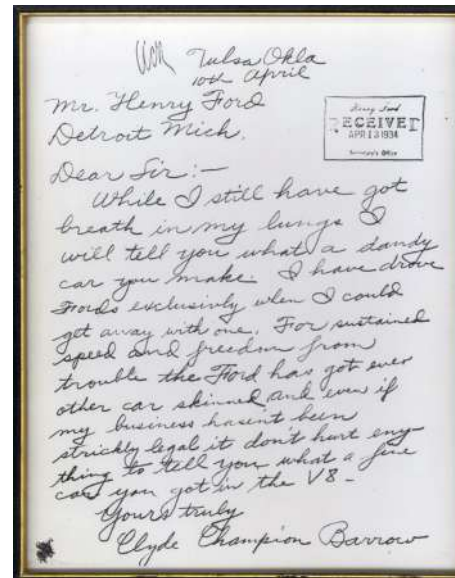 Tulsa Okla
10th April
Mr. Henry Ford
Detroit Mich.
Henry Ford
RECEIVED
APR 13 1934
Secretary's Office
Dear Sir:—
While I still have got
breath in my lungs I
will tell you what a dandy
car you make. I have drove
Fords exclusivly when I could
get away with one. For sustained
speed and freedom from
trouble the Ford has got ever
other car skinned and even if
my business hasen't been
strickly legal it don't hurt eny-
thing to tell you what a fine
car you got in the V8—
Yours truly
Clyde Champion Barrow